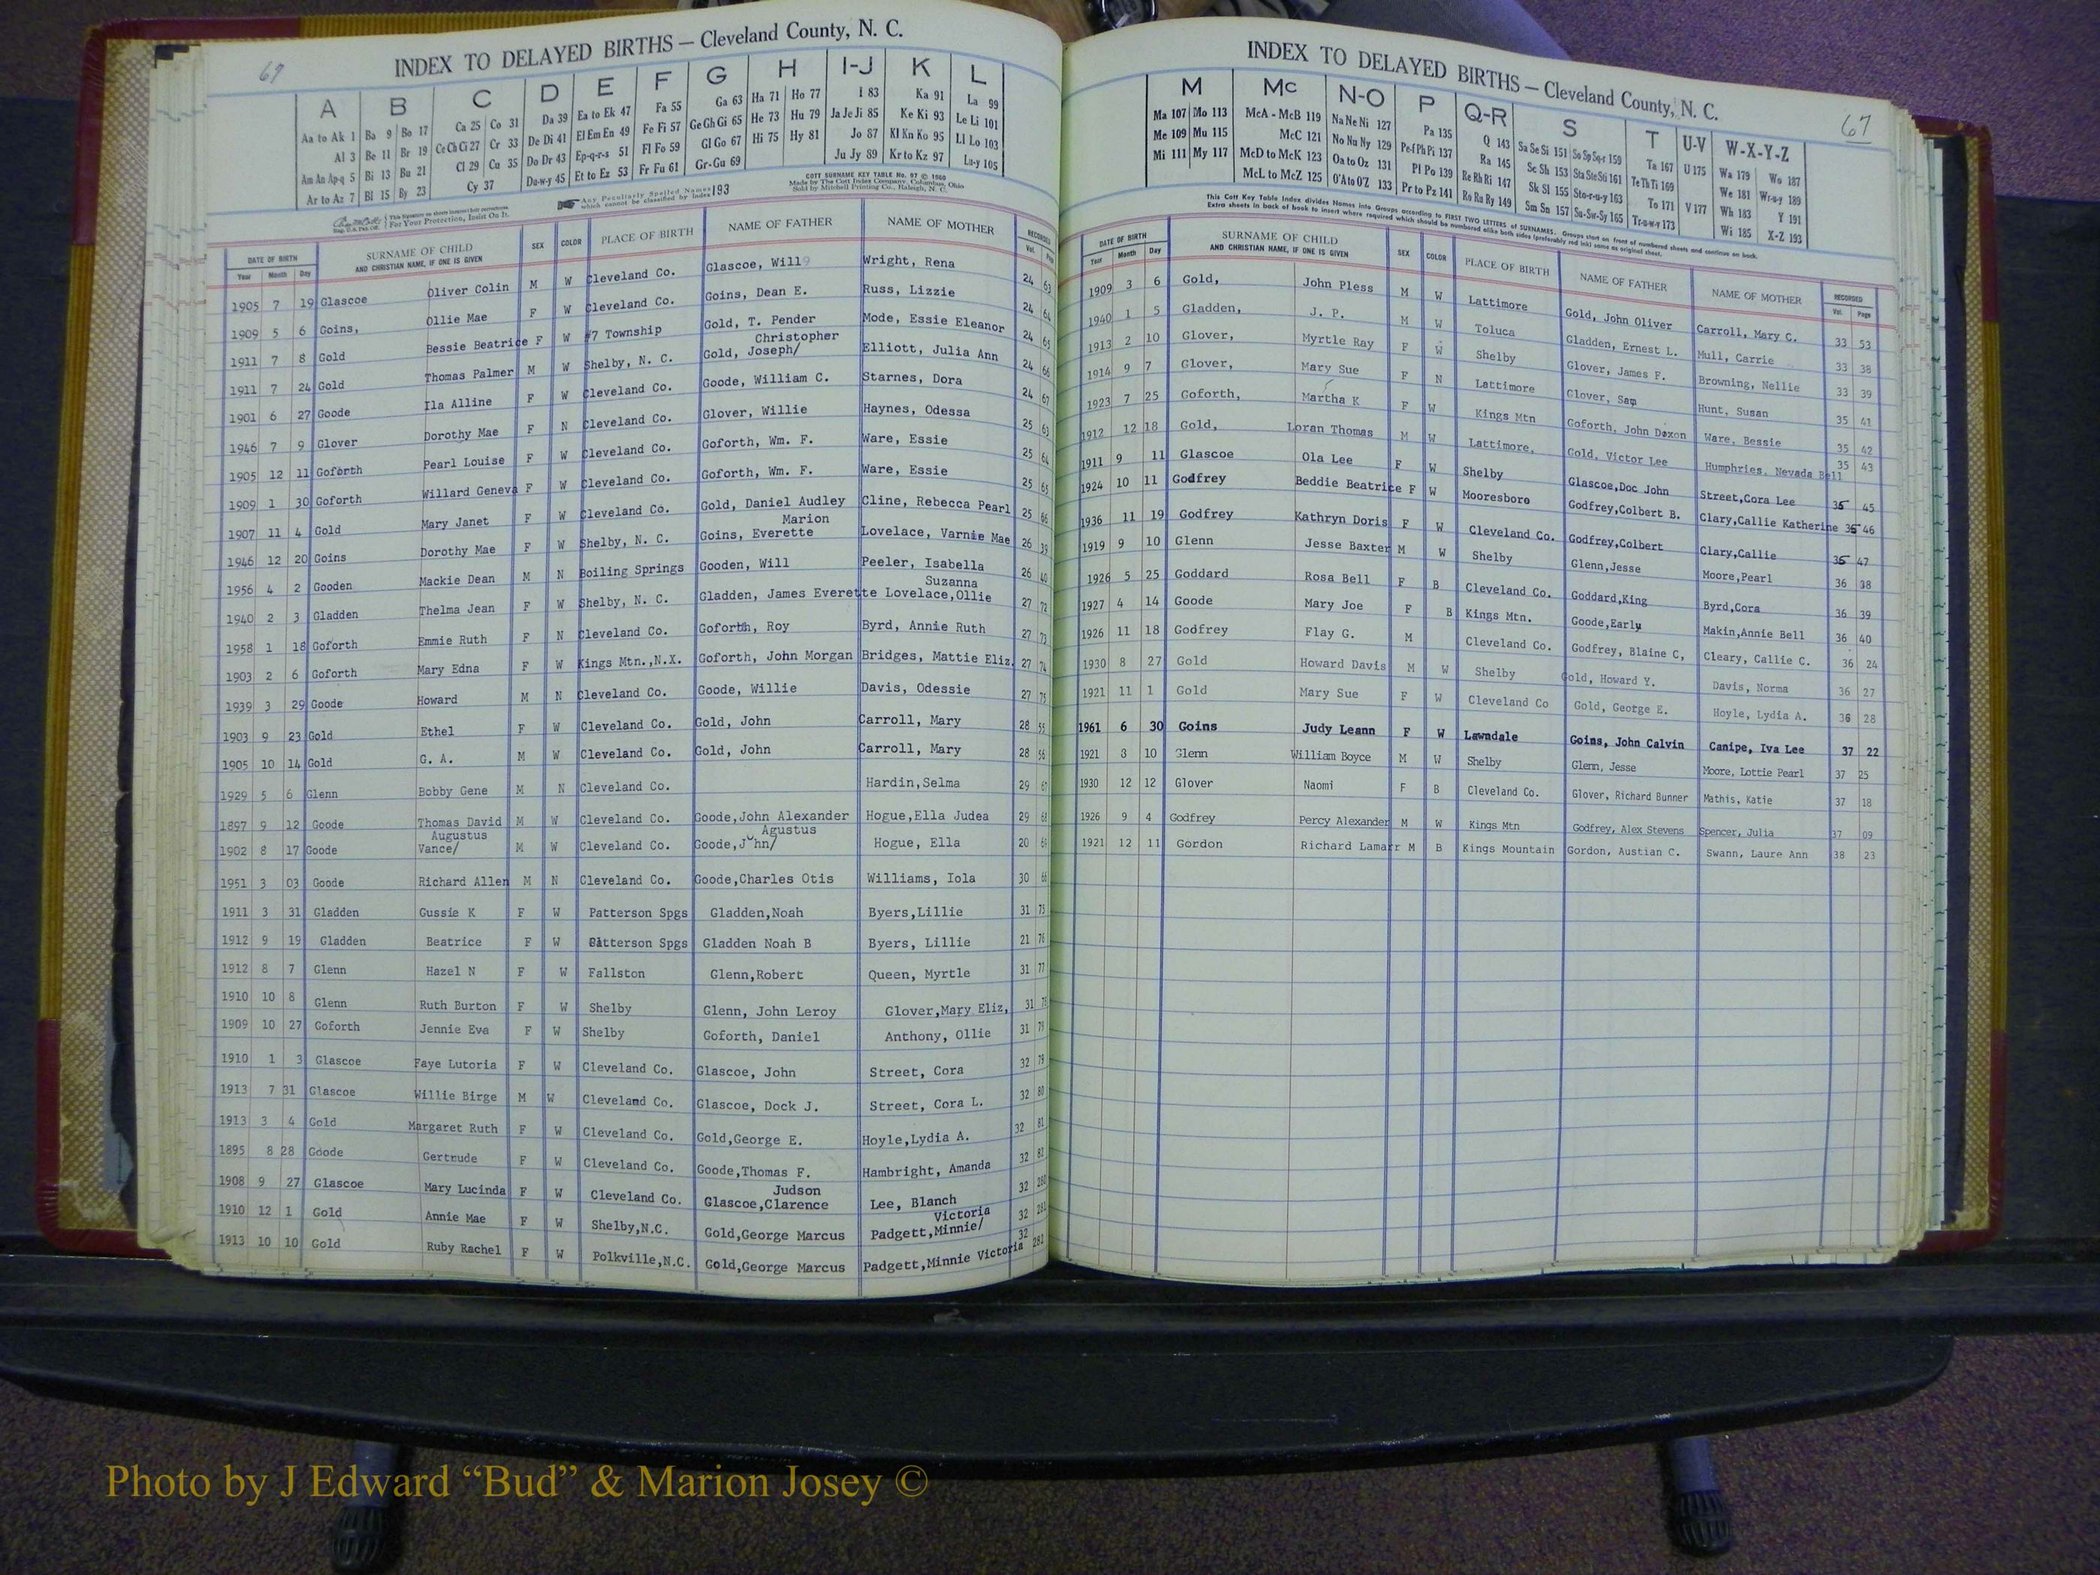 67
INDEX TO DELAYED BIRTHS — Cleveland County, N. C.
A B C D E F G H I-J K L
Aa to Ak 1 Ba 9 Bo 17 Ca 25 Co 31 Da 39 Ea to Ek 47 Fa 55 Ga 63 Ha 71 Ho 77 I 83 Ka 91 La 99
Al 3 Be 11 Br 19 Ce Ch Ci 27 Cr 33 De Di 41 El Em En 49 Fe Fi 57 Ge Gh Gi 65 He 73 Hu 79 Ja Je Ji 85 Ke Ki 93 Le Li 101
Am An Ap-q 5 Bi 13 Bu 21 Cl 29 Cu 35 Do Dr 43 Ep-q-r-s 51 Fl Fo 59 Gl Go 67 Hi 75 Hy 81 Jo 87 Kl Kn Ko 95 Ll Lo 103
Ar to Az 7 Bl 15 By 23 Cy 37 Du-w-y 45 Et to Ez 53 Fr Fu 61 Gr-Gu 69 Ju Jy 89 Kr to Kz 97 Lu-y 105
This Signature on sheets insures correctness.
For Your Protection, Insist On It.
Any Peculiarly Spelled Names which cannot be classified by Index 193
COTT SURNAME KEY TABLE No. 97 © 1960
Made by The Cott Index Company, Columbus, Ohio
Sold by Mitchell Printing Co., Raleigh, N. C.
DATE OF BIRTH SURNAME OF CHILD AND CHRISTIAN NAME, IF ONE IS GIVEN SEX COLOR PLACE OF BIRTH NAME OF FATHER NAME OF MOTHER RECORDED
Year Month Day Vol. Page
1905 7 19 Glascoe Oliver Colin M W Cleveland Co. Glascoe, Will Wright, Rena 24 63
1909 5 6 Goins, Ollie Mae F W Cleveland Co. Goins, Dean E. Russ, Lizzie 24 64
1911 7 8 Gold Bessie Beatrice F W #7 Township Gold, T. Pender Mode, Essie Eleanor 24 65
1911 7 24 Gold Thomas Palmer M W Shelby, N. C. Gold, Joseph/ Christopher Elliott, Julia Ann 24 66
1901 6 27 Goode Ila Alline F W Cleveland Co. Goode, William C. Starnes, Dora 24 67
1946 7 9 Glover Dorothy Mae F N Cleveland Co. Glover, Willie Haynes, Odessa 25 63
1905 12 11 Goforth Pearl Louise F W Cleveland Co. Goforth, Wm. F. Ware, Essie 25 64
1909 1 30 Goforth Willard Geneva F W Cleveland Co. Goforth, Wm. F. Ware, Essie 25 65
1907 11 4 Gold Mary Janet F W Cleveland Co. Gold, Daniel Audley Cline, Rebecca Pearl 25 66
1946 12 20 Goins Dorothy Mae F W Shelby, N. C. Goins, Everette Marion Lovelace, Varnie Mae 26 39
1956 4 2 Gooden Mackie Dean M N Boiling Springs Gooden, Will Peeler, Isabella 26 40
1940 2 3 Gladden Thelma Jean F W Shelby, N. C. Gladden, James Everette Lovelace,Ollie Suzanna 27 72
1958 1 18 Goforth Emmie Ruth F N Cleveland Co. Goforth, Roy Byrd, Annie Ruth 27 73
1903 2 6 Goforth Mary Edna F W Kings Mtn.,N.X. Goforth, John Morgan Bridges, Mattie Eliz. 27 74
1939 3 29 Goode Howard M N Cleveland Co. Goode, Willie Davis, Odessie 27 75
1903 9 23 Gold Ethel F W Cleveland Co. Gold, John Carroll, Mary 28 55
1905 10 14 Gold G. A. M W Cleveland Co. Gold, John Carroll, Mary 28 56
1929 5 6 Glenn Bobby Gene M N Cleveland Co. Hardin,Selma 29 67
1897 9 12 Goode Thomas David M W Cleveland Co. Goode,John Alexander Hogue,Ella Judea 29 68
1902 8 17 Goode Vance/ Augustus M W Cleveland Co. Goode,John/ Agustus Hogue, Ella 20 69
1951 3 03 Goode Richard Allen M N Cleveland Co. Goode,Charles Otis Williams, Iola 30 66
1911 3 31 Gladden Gussie K F W Patterson Spgs Gladden,Noah Byers,Lillie 31 75
1912 9 19 Gladden Beatrice F W Patterson Spgs Gladden Noah B Byers, Lillie 21 76
1912 8 7 Glenn Hazel N F W Fallston Glenn,Robert Queen, Myrtle 31 77
1910 10 8 Glenn Ruth Burton F W Shelby Glenn, John Leroy Glover,Mary Eliz, 31 78
1909 10 27 Goforth Jennie Eva F W Shelby Goforth, Daniel Anthony, Ollie 31 79
1910 1 3 Glascoe Faye Lutoria F W Cleveland Co. Glascoe, John Street, Cora 32 79
1913 7 31 Glascoe Willie Birge M W Cleveland Co. Glascoe, Dock J. Street, Cora L. 32 80
1913 3 4 Gold Margaret Ruth F W Cleveland Co. Gold,George E. Hoyle,Lydia A. 32 81
1895 8 28 Goode Gertrude F W Cleveland Co. Goode,Thomas F. Hambright, Amanda 32 82
1908 9 27 Glascoe Mary Lucinda F W Cleveland Co. Glascoe,Clarence Judson Lee, Blanch 32 280
1910 12 1 Gold Annie Mae F W Shelby,N.C. Gold,George Marcus Padgett,Minnie/ Victoria 32 281
1913 10 10 Gold Ruby Rachel F W Polkville,N.C. Gold,George Marcus Padgett,Minnie Victoria 32 282
INDEX TO DELAYED BIRTHS — Cleveland County, N. C.
67
M Mc N-O P Q-R S T U-V W-X-Y-Z
Ma 107 Mo 113 McA - McB 119 Na Ne Ni 127 Pa 135 Q 143 Sa Se Si 151 So Sp Sq-r 159 Ta 167 U 175 Wa 179 Wo 187
Me 109 Mu 115 McC 121 No Nu Ny 129 Pe-f Ph Pi 137 Ra 145 Sc Sh 153 Sta Ste Sti 161 Te Th Ti 169 We 181 Wr-u-y 189
Mi 111 My 117 McD to McK 123 Oa to Oz 131 Pl Po 139 Re Rh Ri 147 Sk Sl 155 Sto-r-u-y 163 To 171 V 177 Wh 183 Y 191
McL to McZ 125 O'A to O'Z 133 Pr to Pz 141 Ro Ru Ry 149 Sm Sn 157 Su-Sw-Sy 165 Tr-u-w-y 173 Wi 185 X-Z 193
This Cott Key Table Index divides Names into Groups according to FIRST TWO LETTERS of SURNAMES. Groups start on front of numbered sheets and continue on back.
Extra sheets in back of book to insert where required which should be numbered alike both sides (preferably red ink) same as original sheet.
DATE OF BIRTH SURNAME OF CHILD AND CHRISTIAN NAME, IF ONE IS GIVEN SEX COLOR PLACE OF BIRTH NAME OF FATHER NAME OF MOTHER RECORDED
Year Month Day Vol. Page
1909 3 6 Gold, John Pless M W Lattimore Gold, John Oliver Carroll, Mary C. 33 53
1940 1 5 Gladden, J. P. M W Toluca Gladden, Ernest L. Mull, Carrie 33 38
1913 2 10 Glover, Myrtle Ray F W Shelby Glover, James F. Browning, Nellie 33 39
1914 9 7 Glover, Mary Sue F N Lattimore Glover, Sam Hunt, Susan 35 41
1923 7 25 Goforth, Martha K F W Kings Mtn Goforth, John Doxon Ware, Bessie 35 42
1912 12 18 Gold, Loran Thomas M W Lattimore, Gold, Victor Lee Humphries, Nevada Bell 35 43
1911 9 11 Glascoe Ola Lee F W Shelby Glascoe,Doc John Street,Cora Lee 35 45
1924 10 11 Godfrey Beddie Beatrice F W Mooresboro Godfrey,Colbert B. Clary,Callie Katherine 35 46
1936 11 19 Godfrey Kathryn Doris F W Cleveland Co. Godfrey,Colbert Clary,Callie 35 47
1919 9 10 Glenn Jesse Baxter M W Shelby Glenn,Jesse Moore,Pearl 36 38
1926 5 25 Goddard Rosa Bell F B Cleveland Co. Goddard,King Byrd,Cora 36 39
1927 4 14 Goode Mary Joe F B Kings Mtn. Goode,Early Makin,Annie Bell 36 40
1926 11 18 Godfrey Flay G. M Cleveland Co. Godfrey, Blaine C, Cleary, Callie C. 36 24
1930 8 27 Gold Howard Davis M W Shelby Gold, Howard Y. Davis, Norma 36 27
1921 11 1 Gold Mary Sue F W Cleveland Co Gold, George E. Hoyle, Lydia A. 36 28
1961 6 30 Goins Judy Leann F W Lawndale Goins, John Calvin Canipe, Iva Lee 37 22
1921 8 10 Glenn William Boyce M W Shelby Glenn, Jesse Moore, Lottie Pearl 37 25
1930 12 12 Glover Naomi F B Cleveland Co. Glover, Richard Bunner Mathis, Katie 37 18
1926 9 4 Godfrey Percy Alexander M W Kings Mtn Godfrey, Alex Stevens Spencer, Julia 37 09
1921 12 11 Gordon Richard Lamarr M B Kings Mountain Gordon, Austian C. Swann, Laure Ann 38 23
Photo by J Edward “Bud” & Marion Josey ©